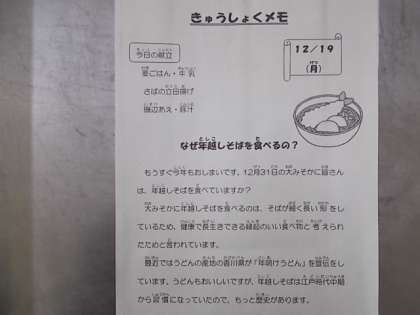 きゅうしょくメモ
12/19
(月)
今日の献立
麦ごはん・牛乳
さばの立田揚げ
磯辺あえ・豚汁
なぜ年越しそばを食べるの?
もうすぐ今年もおしまいです。12月31日の大みそかに皆さん
は、年越しそばを食べていますか?
大みそかに年越しそばを食べるのは、そばが細く長い形をし
ているため、健康で長生きできる縁起のいい食べ物と考えら
れたためと言われています。
最近ではうどんの産地の香川県が「年明けうどん」を宣伝をし
ています。うどんもおいしいですが、年越しそばは江戸時代中期
から習慣になっていたので、もっと歴史があります。